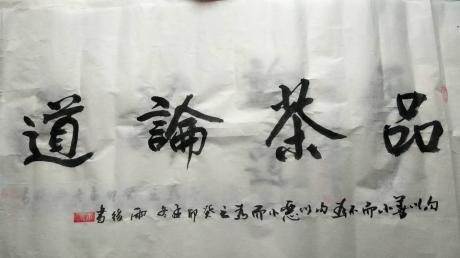 品茶論道
勿以善小而不為勿以惡小而為之癸卯冬雨